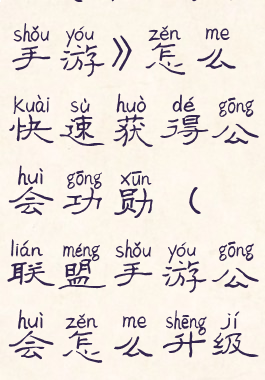 shǒu yóu zěn me
手游》怎么
kuài sù huò dé gōng
快速获得公
huì gōng xūn
会功勋（
lián méng shǒu yóu gōng
联盟手游公
huì zěn me shēng jí
会怎么升级